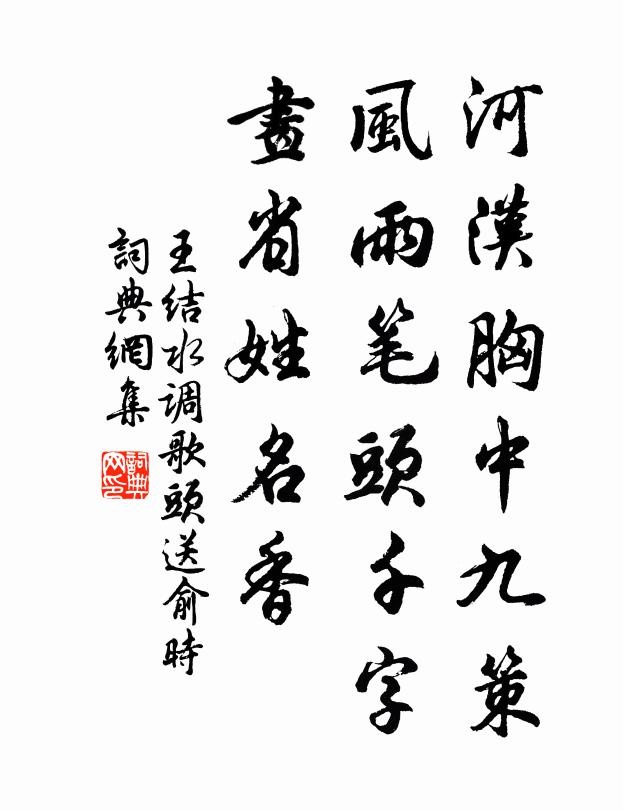 河漢胸中九策
風雨笔頭千字
畫省姓名香
王结水调歌頭送俞時
詞典網集
詞典网印